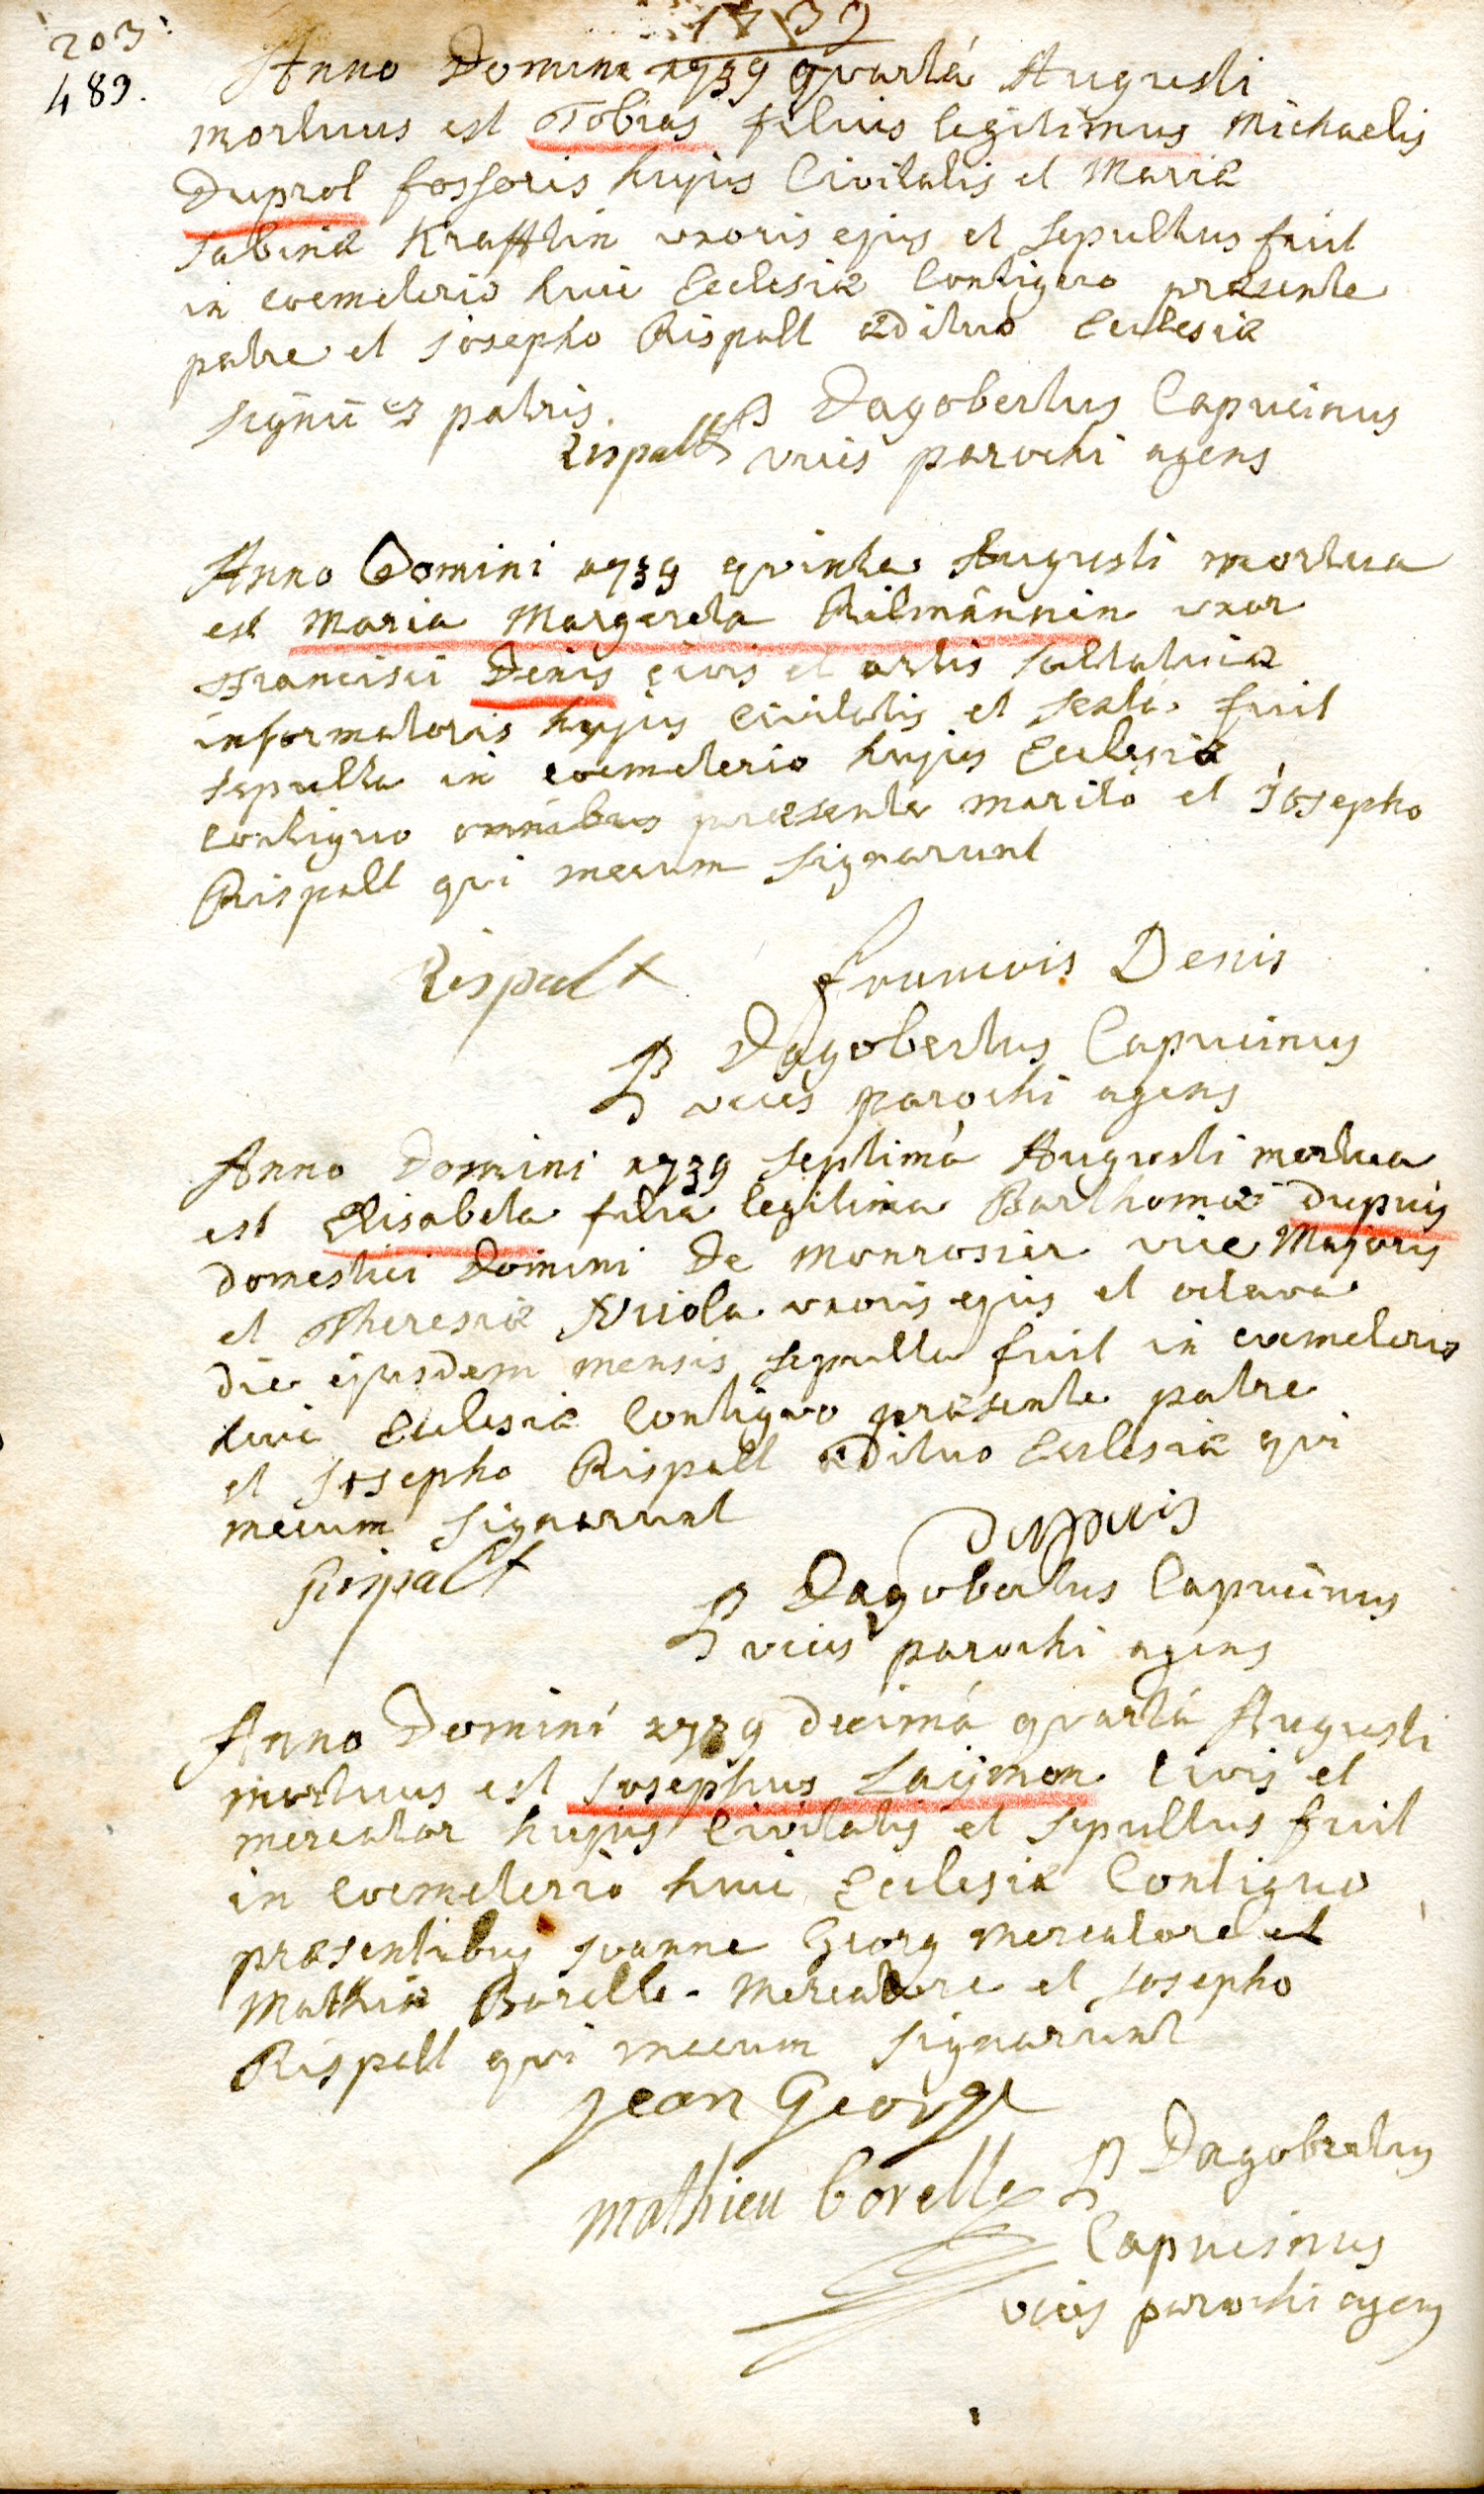 203
489.
1739
Anno Domini 1739 quartâ Augusti
mortuus est Tobias filius legitimus Michaelis
Duprol fossoris hujus Civitatis et Mariæ
Sabinæ Krafftin uxoris ejus et sepultus fuit
in coemeterio huic Ecclesiæ Contiguo præsente
patre et Josepho Rispalt ædituo Ecclesiæ
signū patris.
P Dagobertus Capucinus
Rispalt
vices parochi agens
Anno Domini 1739 quinta Augusti mortua
est Maria Margareta Rilmännin uxor
Francisci Denis civis et artis saltatricæ
informatoris hujus Civitatis et sextâ fuit
sepulta in coemeterio hujus Ecclesiæ
contiguo omnibus præsente maritô et Josepho
Rispalt qui mecum signarunt
Rispalt francois Denis
P Dagobertus Capucinus
vices parochi agens
Anno Domini 1739 septimâ Augusti mortua
est Elisabeta filia legitima Barthomæ Dupuis
domestici Domini De Monrosier vice Majoris
et Theresiæ uxoris ejus et octava
die ejusdem mensis sepulta fuit in coemeterio
huic Ecclesiæ Contiguo præsente patre
et Josepho Rispalt ædituo Ecclesiæ qui
mecum signarunt
Dupuis
Rispalt
P Dagobertus Capucinus
vices parochi agens
Anno Domini 1739 decimâ quartâ Augusti
mortuus est Josephus Laijmen Civis et
mercator hujus Civitatis et sepultus fuit
in Coemeterio huic Ecclesiæ Contiguo
præsentibus Joanne Georg mercatore et
Mathiæ Borelle mercatore et Josepho
Rispalt qui mecum signarunt
jean George
P Dagobertus
mathieu borelle
Capucinus
vices parochi agens